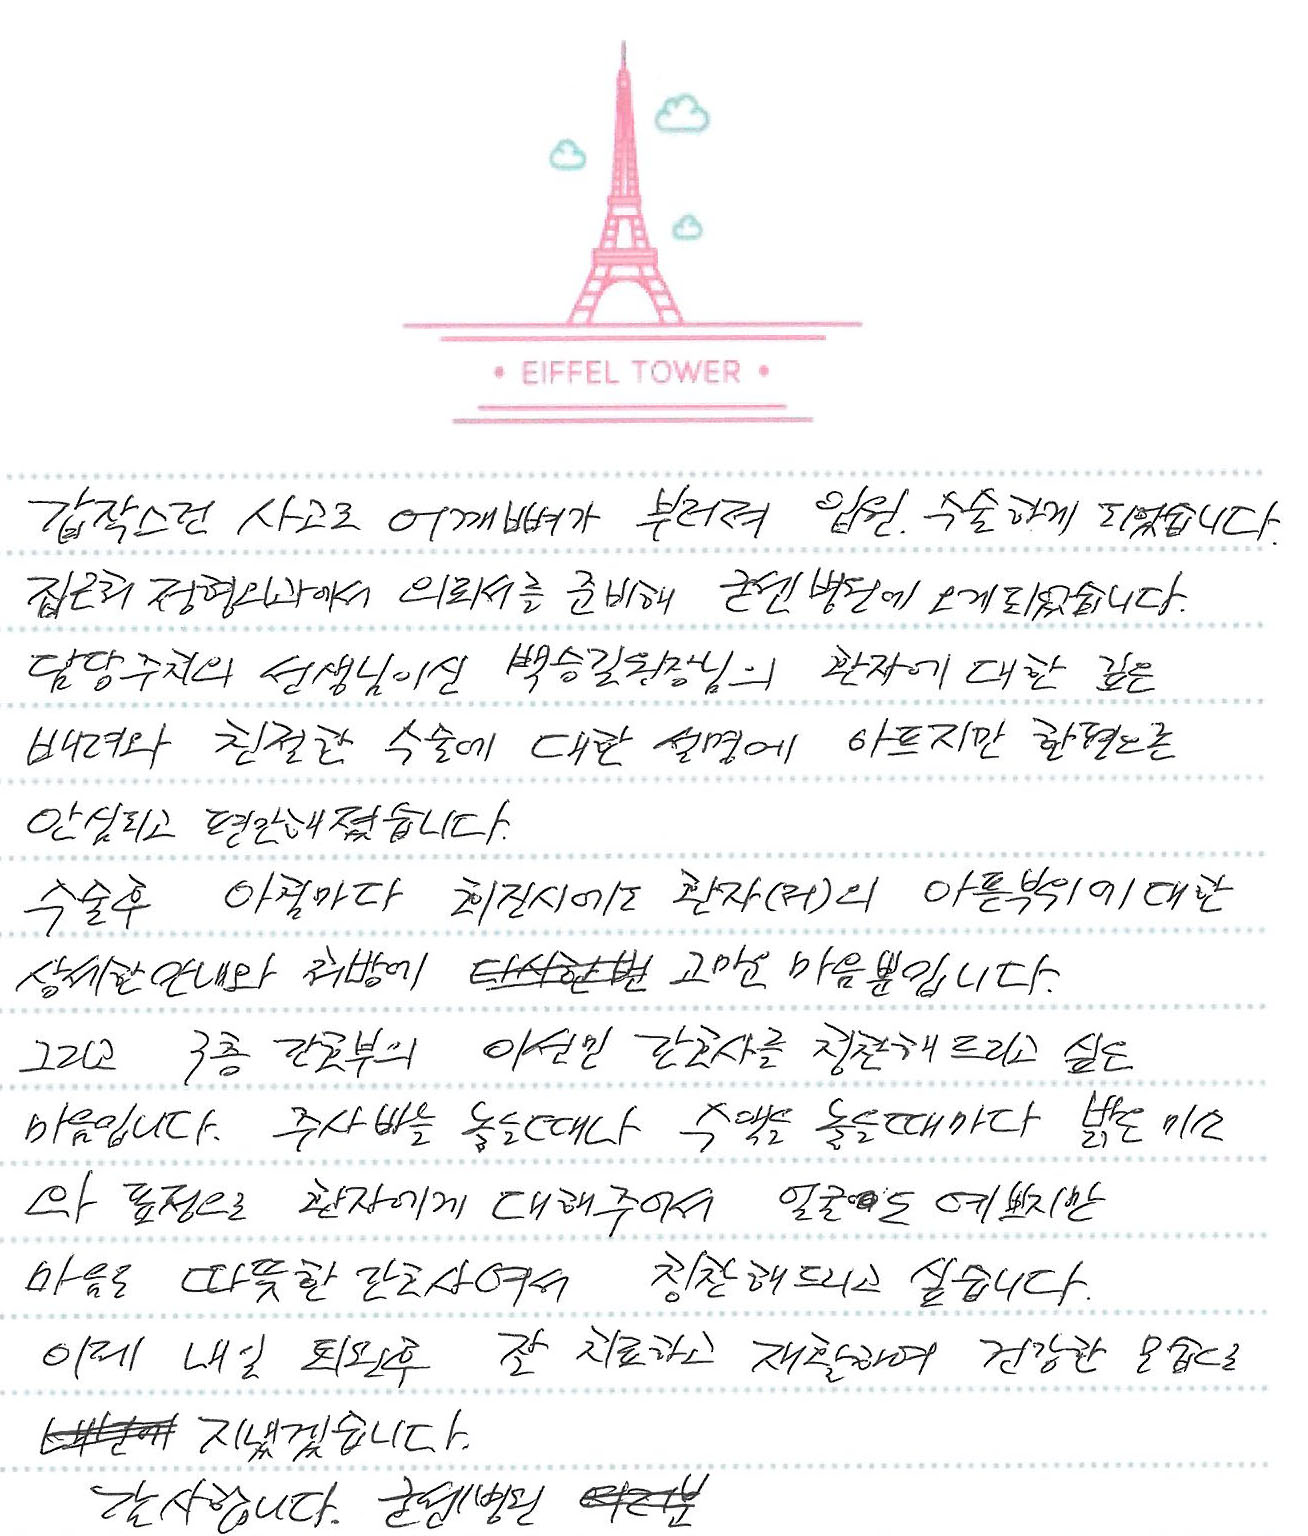 EIFFEL TOWER
갑작스런 사고로 어깨뼈가 부러져 입원. 수술하게 되었습니다.
집근처 정형외과에서 의뢰서를 준비해 굿센병원에 오게되었습니다.
담당주치의 선생님이신 백승길원장님의 환자에 대한 깊은
배려와 친절한 수술에 대한 설명에 아프지만 한편으론
안심되고 편안해졌습니다.
수술후 아침마다 회진시에도 환자(저)의 아픈부위에 대한
상세한안내와 처방에 고마운 마음뿐입니다.
그리고 구층 간호부의 이선민 간호사를 칭찬해 드리고 싶은
마음입니다. 주사바늘 놓을때나 수액을 놓을때마다 밝은 미소
와 표정으로 환자에게 대해주어서 얼굴도 예쁘지만
마음도 따뜻한 간호사여서 칭찬해드리고 싶습니다.
이제 내일 퇴원후 잘 치료하고 재활하여 건강한 모습으로
지냈겠습니다.
감사합니다. 굿센병원